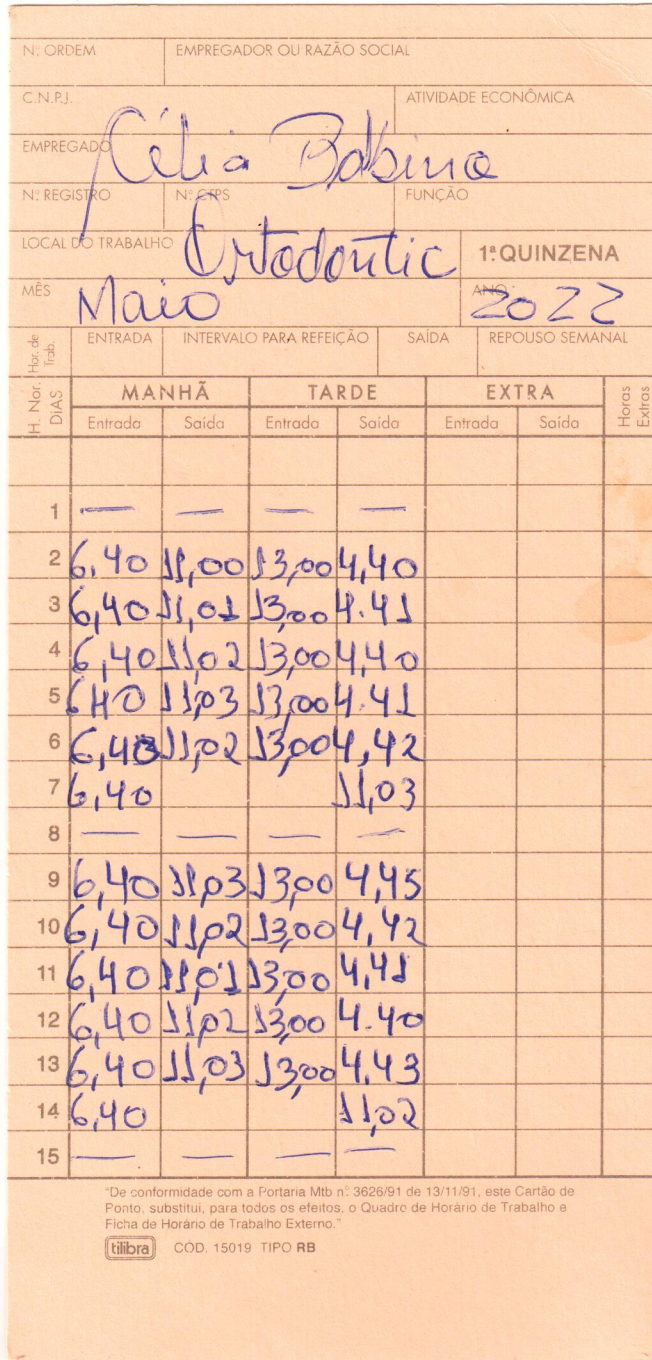 Nº ORDEM EMPREGADOR OU RAZÃO SOCIAL
C.N.P.J. ATIVIDADE ECONÔMICA
EMPREGADO Célia Balsina
Nº REGISTRO Nº CTPS FUNÇÃO
LOCAL DO TRABALHO Ortodontic 1ª QUINZENA
MÊS Maio ANO 2022
Hor. de Trab. ENTRADA INTERVALO PARA REFEIÇÃO SAÍDA REPOUSO SEMANAL
H. Nor. DIAS MANHÃ TARDE EXTRA Horas Extras
Entrada Saída Entrada Saída Entrada Saída
1 — — — —
2 6,40 11,00 13,00 4,40
3 6,40 11,01 13,00 4.41
4 6,40 11,02 13,00 4,40
5 640 11,03 13,00 4.41
6 6,40 11,02 13,00 4,42
7 6,40 11,03
8 — — — —
9 6,40 11,03 13,00 4,45
10 6,40 11,02 13,00 4,42
11 6,40 11,01 13,00 4,41
12 6,40 11,02 13,00 4.40
13 6,40 11,03 13,00 4,43
14 6,40 11,02
15 — — — —
"De conformidade com a Portaria Mtb n.º 3626/91 de 13/11/91, este Cartão de
Ponto, substitui, para todos os efeitos, o Quadro de Horário de Trabalho e
Ficha de Horário de Trabalho Externo."
tilibra CÓD. 15019 TIPO RB